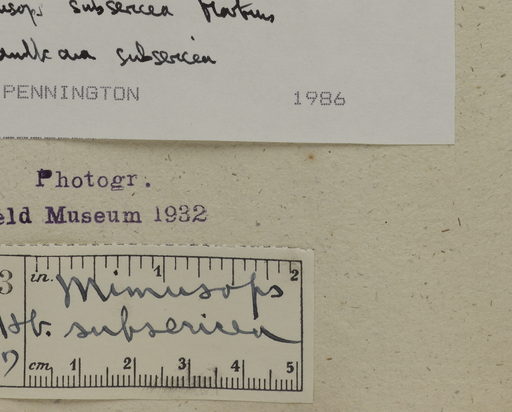 subsericea Martius
subsericea
PENNINGTON 1986
Photogr.
eld Museum 1932
3 in. 1 2
Mimusops
Hb. subsericea
cm 1 2 3 4 5